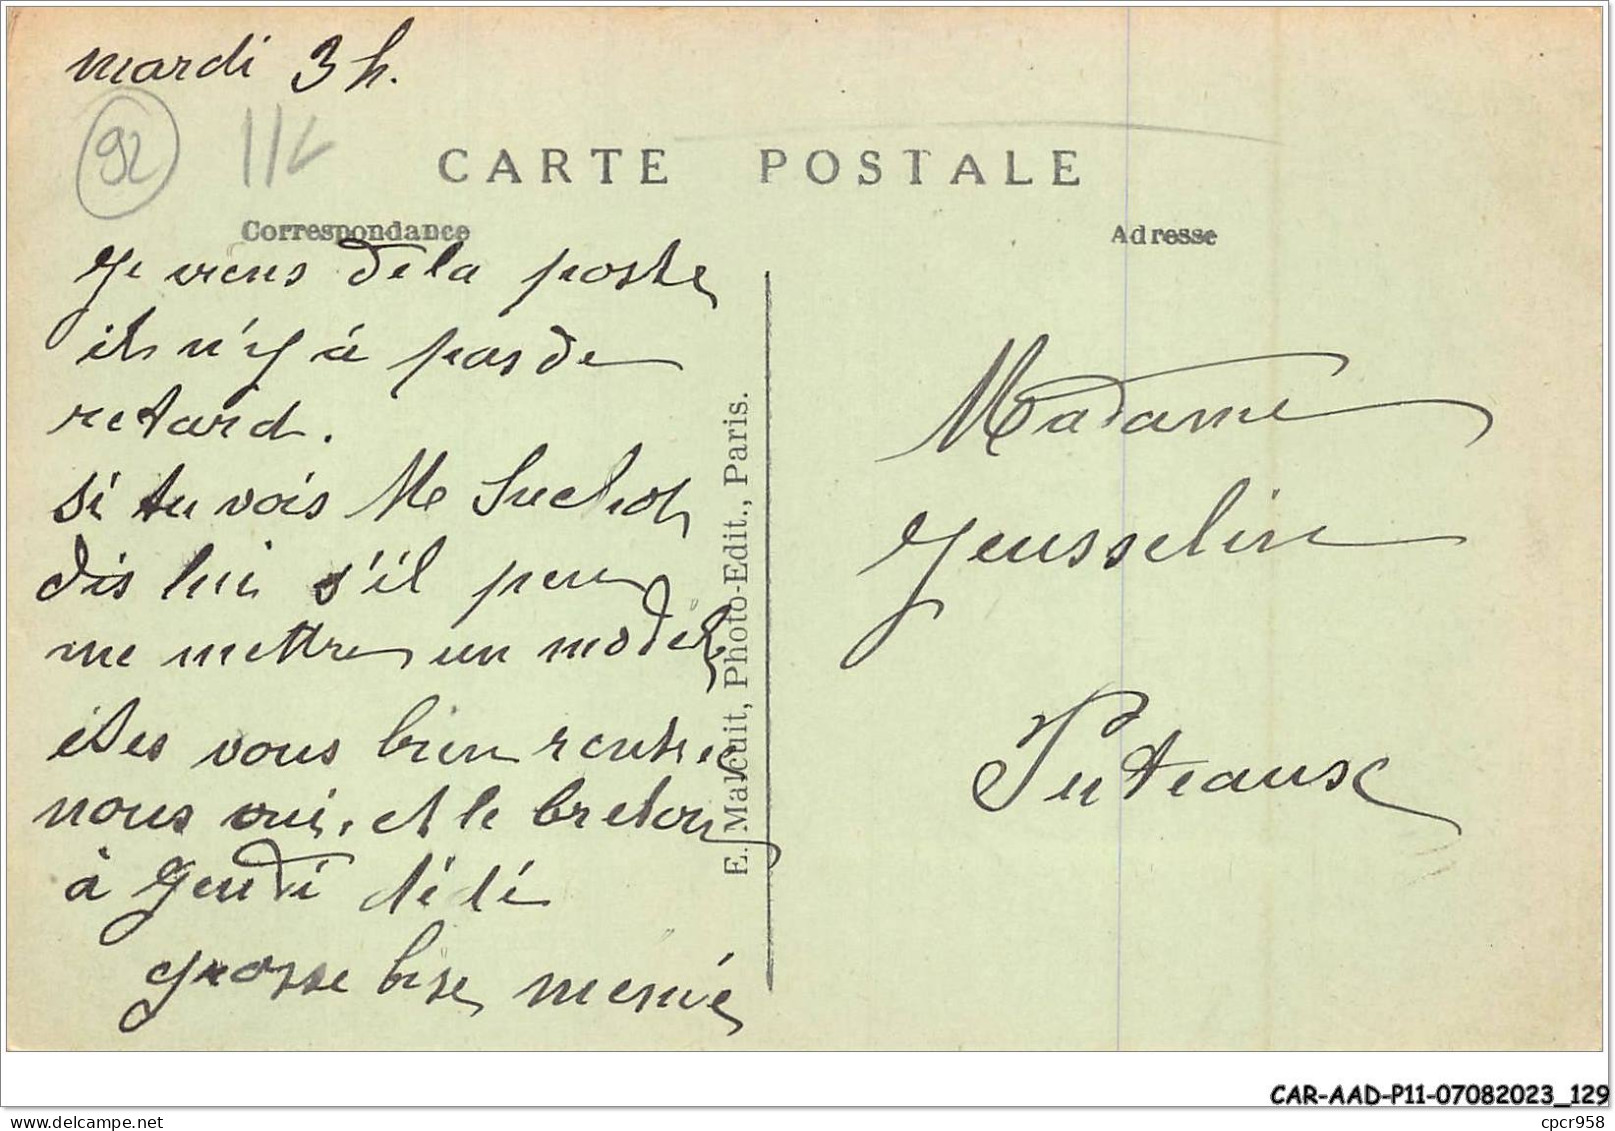 mardi 3 h.
92
CARTE POSTALE
Correspondance
Adresse
Je viens de la poste
il n'y à pas de
retard.
si tu vois Me Suchot
dis lui s'il peu
me mettre un model
êtes vous bien rentré
nous oui, et le breton
à Jeudi dédé
grosse bise
Madame
Jeusseline
Puteaux
E. Malcuit, Photo-Edit., Paris.
CAR-AAD-P11-07082023_129
cpcr958